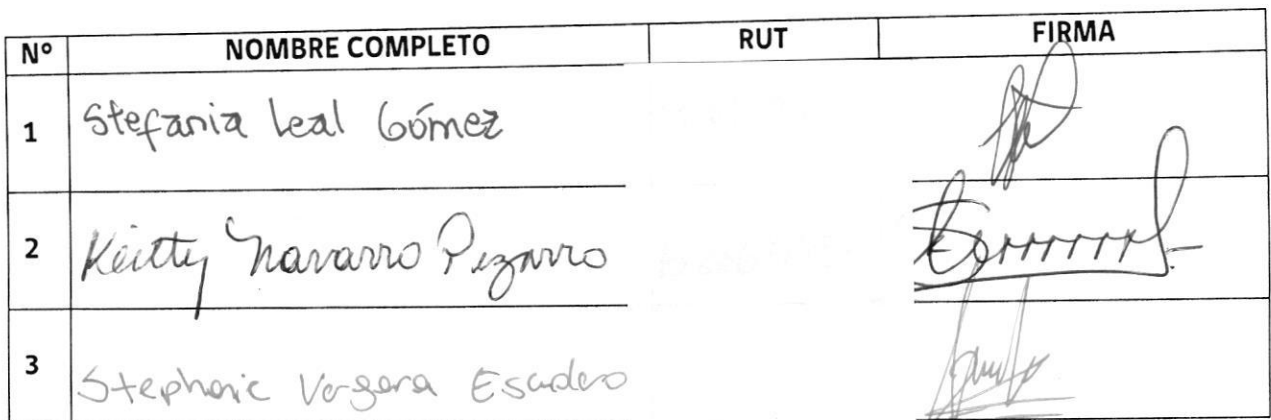 Nº NOMBRE COMPLETO RUT FIRMA
1 Stefania Leal Gómez
2 Keitty Navarro Pizarro
3 Stephanie Vergara Escudero